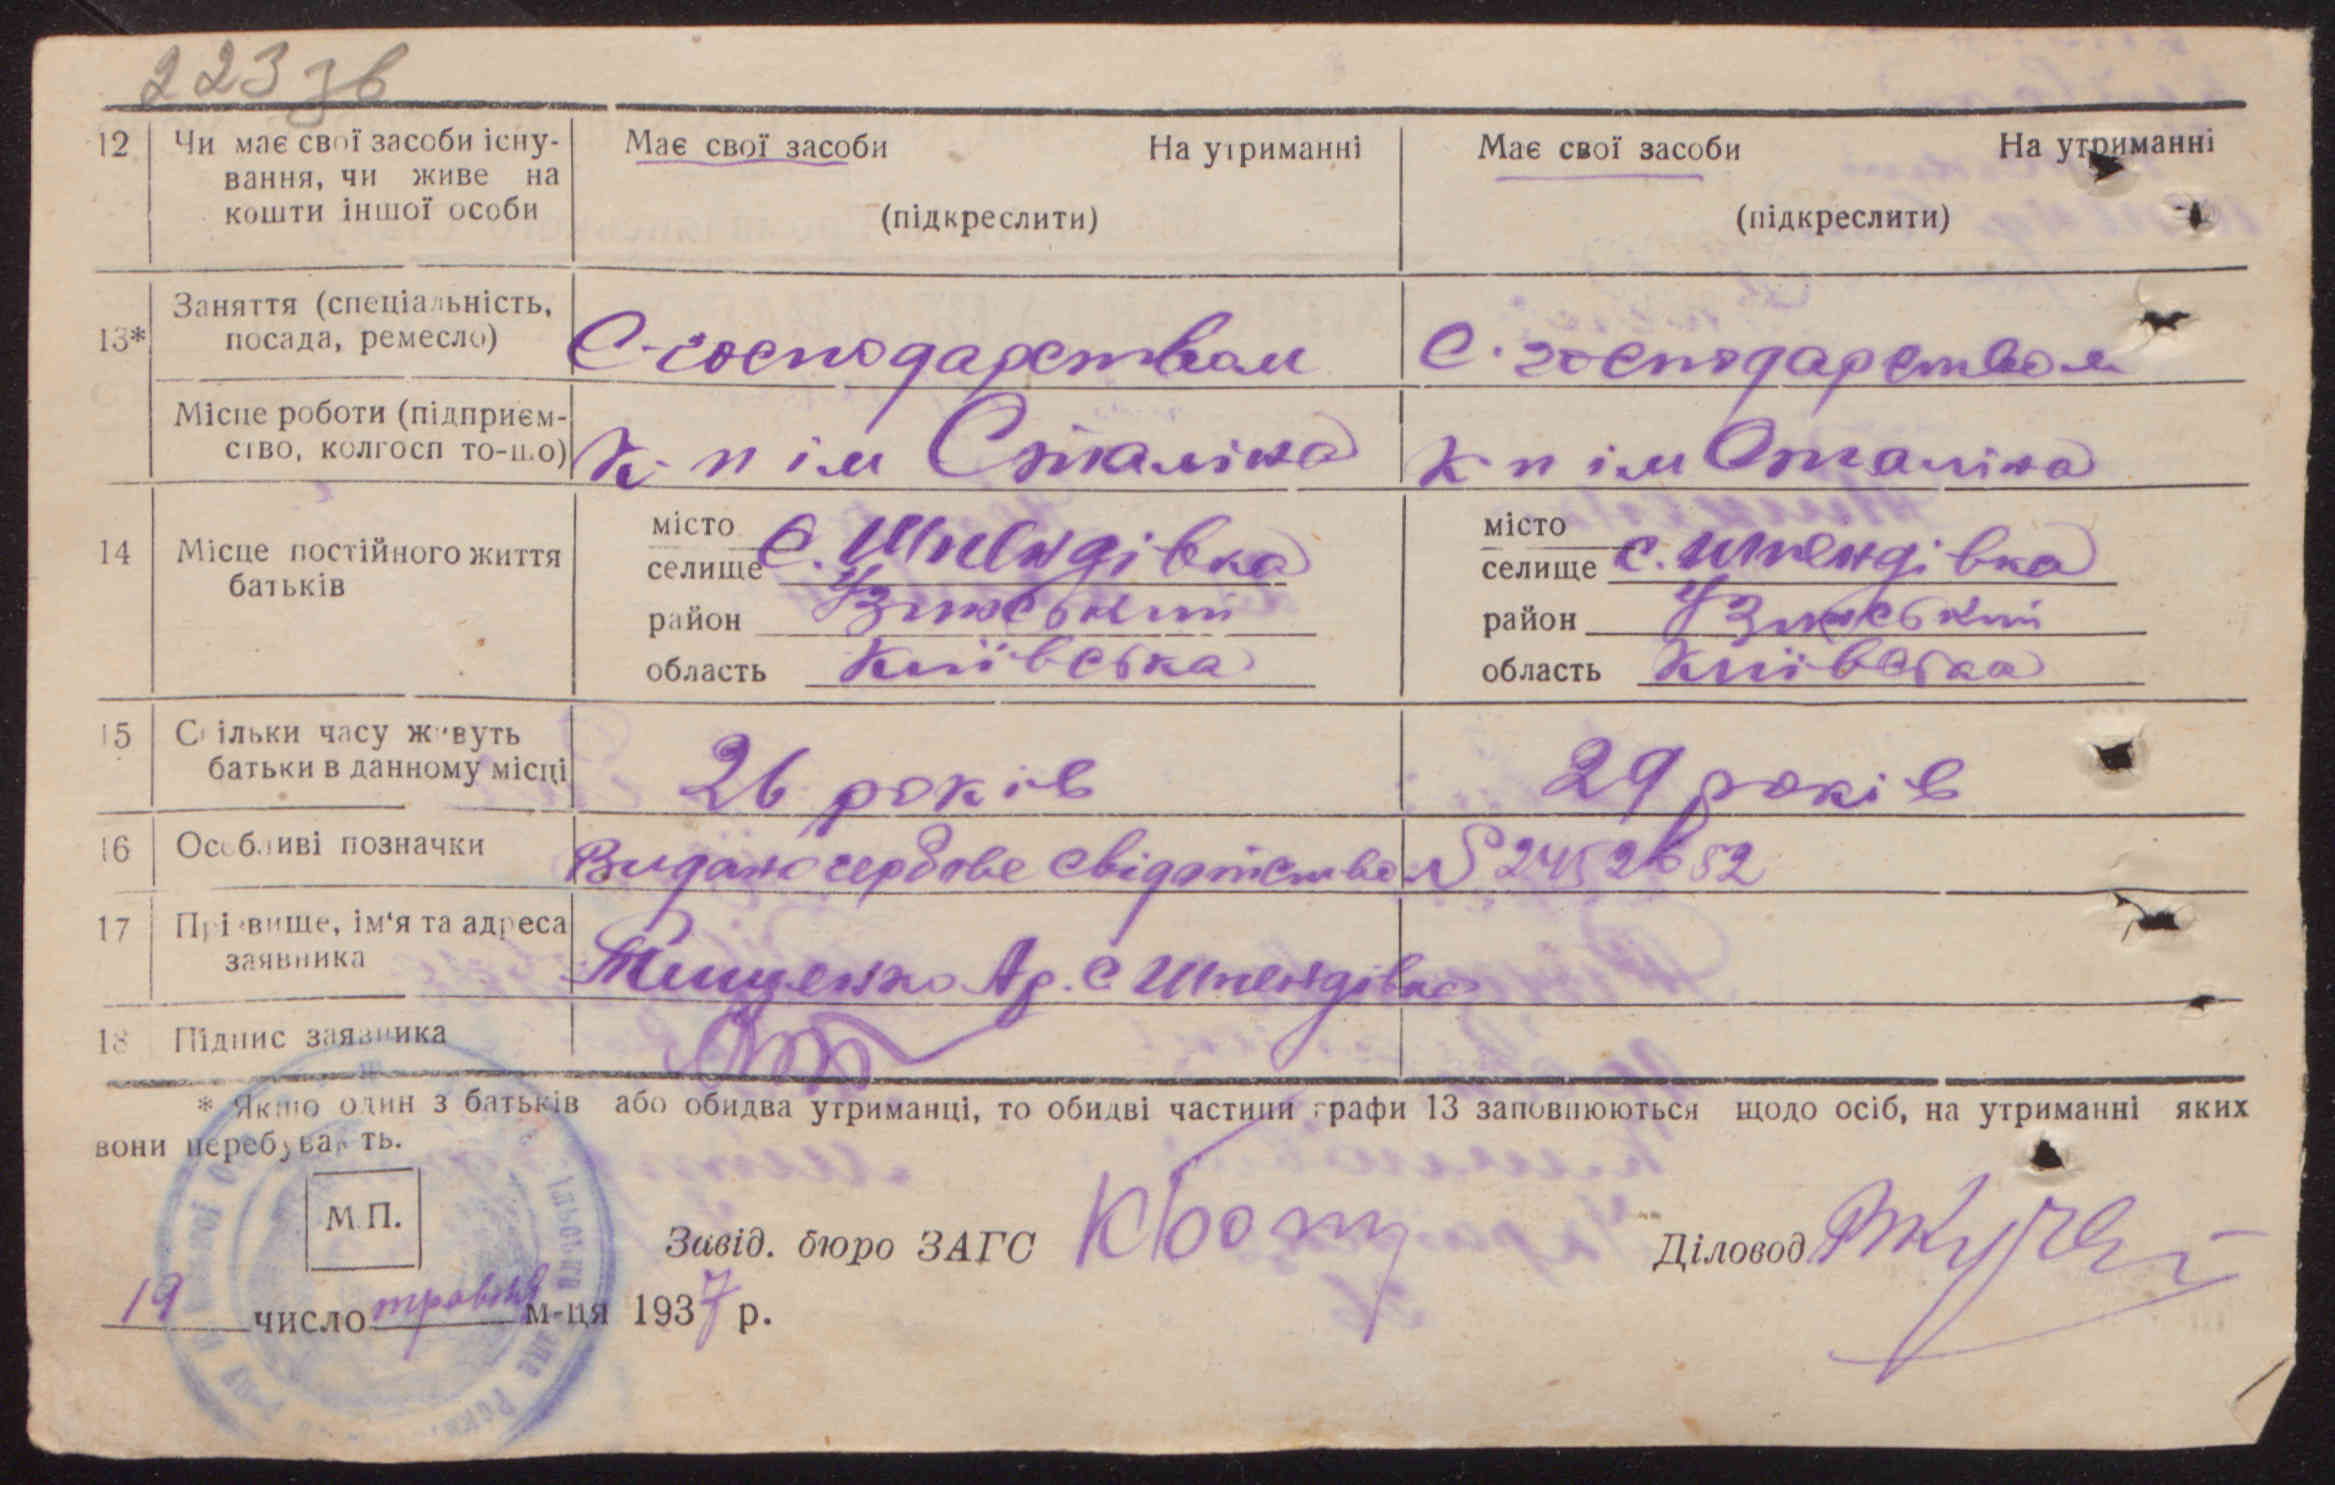 223 зв
12 Чи має свої засоби існу- Має свої засоби На утриманні Має свої засоби На утриманні
вання, чи живе на
кошти іншої особи (підкреслити) (підкреслити)
Заняття (спеціальність,
13* посада, ремесло) С-господарством С. господарством
Місце роботи (підприєм-
ство, колгосп то-що) к-п ім Сталіна к-п ім Сталіна
місто місто
14 Місце постійного життя селище с. Шпендівка селище с. Шпендівка
батьків
район Узинський район Узинський
область Київська область Київська
15 Скільки часу живуть
батьки в данному місці 26 років 29 років
16 Особливі позначки Видано гербове свідотство №
17 Прізвище, ім'я та адреса
заявника Тищенко Ар. с Шпендівка
18 Підпис заявника
* Якщо один з батьків або обидва утриманці, то обидві частини графи 13 заповнюються щодо осіб, на утриманні яких
вони перебувають.
М.П.
Завід. бюро ЗАГС Діловод
19 число травня м-ця 1937 р.